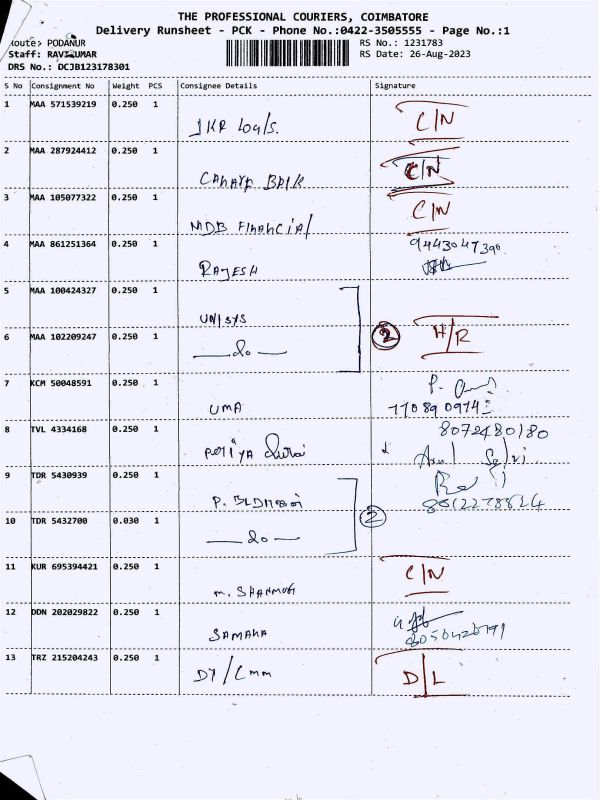 THE PROFESSIONAL COURIERS, COIMBATORE
Delivery Runsheet - PCK - Phone No.:0422-3505555 - Page No.:1
oute: PODANUR
RS No.: 1231783
Staff: RAVIKUMAR
RS Date: 26-Aug-2023
DRS No.: DCJB123178301
S No Consignment No Weight PCS Consignee Details Signature
1 MAA 571539219 0.250 1 JKR Log/s. C/N
2 MAA 287924412 0.250 1 C/N
3 MAA 105077322 0.250 1 MDB Financial C/N
4 MAA 861251364 0.250 1 RAJESH 9443047390
5 MAA 100424327 0.250 1 UNISYS
6 MAA 102209247 0.250 1 —do— 2 H/R
7 KCM 50048591 0.250 1 UMA P.
8 TVL 4334168 0.250 1 8072480180
Arul Selvi.
9 TDR 5430939 0.250 1 P.
10 TDR 5432700 0.030 1 —do— 2
11 KUR 695394421 0.250 1 C/N
12 DDN 202029822 0.250 1 SAMANA
13 TRZ 215204243 0.250 1 DT/Cmm D/L